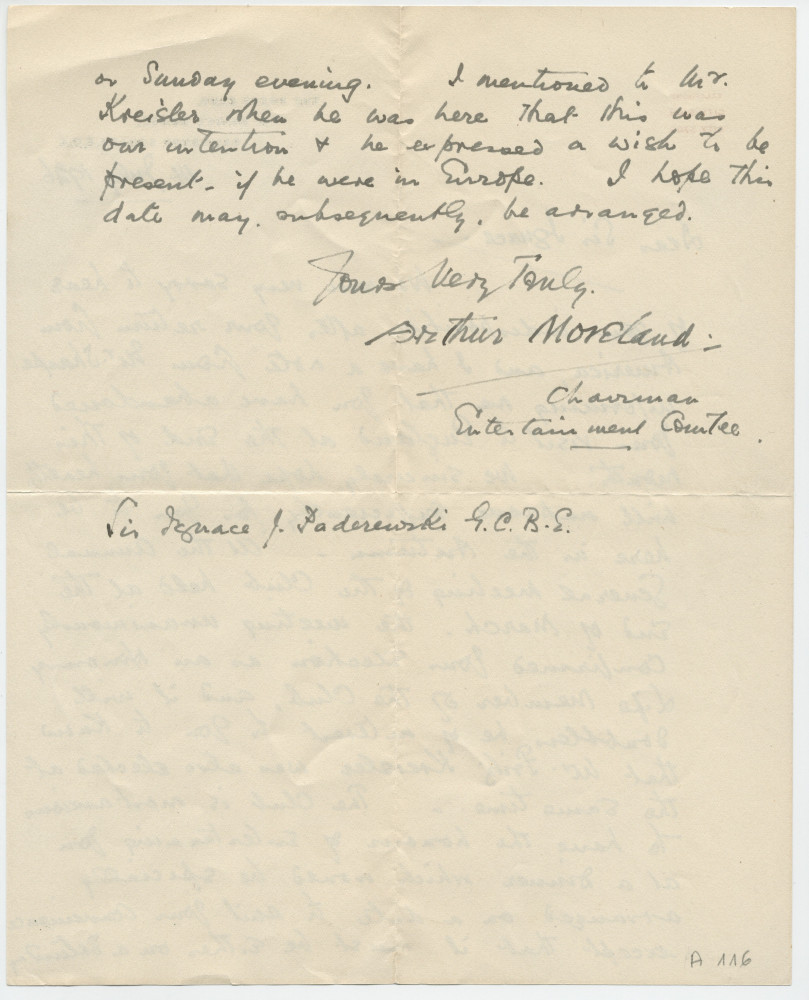 or Sunday evening. I mentioned to Mr.
Kreisler when he was here that this was
our intention & he expressed a wish to be
present - if he were in Europe. I hope this
date may, subsequently, be arranged.
Yours Very Truly.
Arthur Moreland :-
Chairman
Entertainment Comtee.
Sir Ignace J. Paderewski G.C.B.E.
A 116